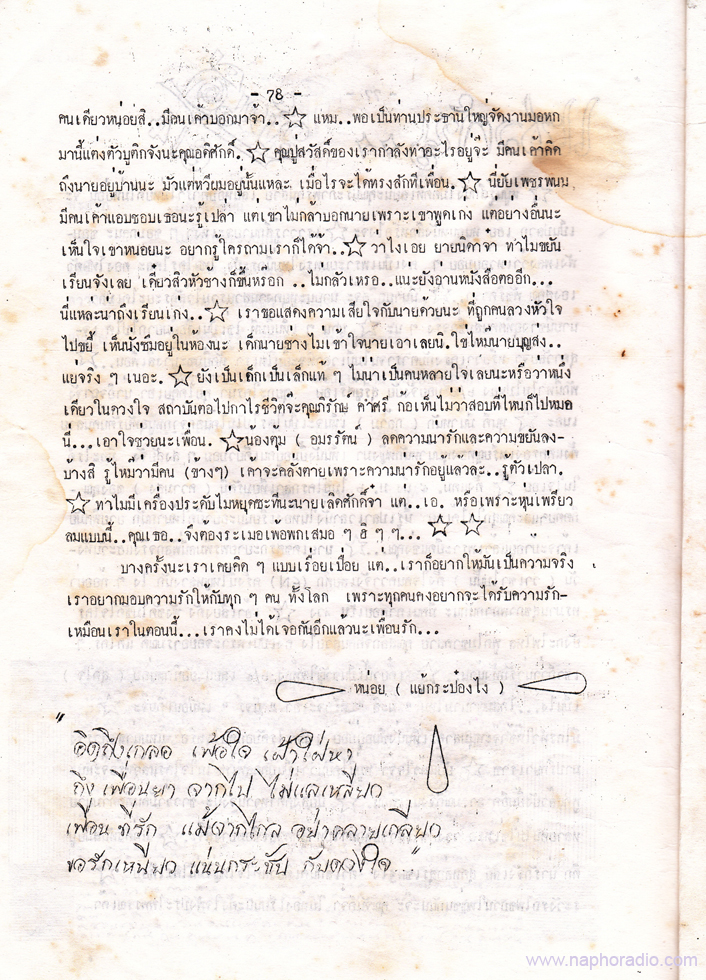 - 78 -
คนเดียวหน่อยสิ..มีอนเค้าบอกมาจ้า..☆ แหม..พอเป็นท่านประธานใหญ่จัดงานมอหก
มานี้แต่งตัวบูติกจังนะคุณอดิศักดิ์.☆ คุณปู่สวัสดิ์ของเรากำลังทำอะไรอยู่จ๊ะ มีคนเค้าคิด
ถึงนายอยู่บ้านนะ มัวแต่หวีผมอยู่นั้นแหละ เมื่อไรจะได้ทรงสักทีเพื่อน.☆นี่ยัยเพชรพนม
มีคนเค้าแอบชอบเธอนะรู้เปล่า แต่เขาไม่กล้าบอกนายเพราะเขาพูดเก่ง แต่อย่างอื่นนะ
เห็นใจเขาหน่อยนะ อยากรู้ใครถามเราก็ได้จ้า..☆ว่าไงเอ่ย ยายนิดาจ๋า ทำไมขยัน
เรียนจังเลย เดี๋ยวสิวหัวช้างก็ขึ้นหรือก ..ไม่กลัวเหรอ..แนะยังอ่านหนังสือต่ออีก...
นี่แหละน่าถึงเรียนเก่ง..☆ เราขอแสดงความเสียใจกับนายด้วยนะ ที่ถูกคนลวงหัวใจ
ไปขยี้ เห็นนั่งซึมอยู่ในห้องนะ เด็กนายช่างไม่เข้าใจนายเอาเลยนิ.ใช่ไหมนายบุญส่ง..
แย่จริง ๆ เนอะ.☆ยังเป็นเด็กเป็นเล็กแท้ ๆ ไม่น่าเป็นคนหลายใจเลยนะหรือว่าหนึ่ง
เดียวในดวงใจ สถาบันต่อไปกำไรชีวิตจ๊ะคุณภิรักษ์ คำศรี ก้อเห็นไม่ว่าสอบที่ไหนก็ไปหมด
นี่...เอาใจช่วยนะเพื่อน. ☆น้องตุ้ม ( อมรรัตน์ ) ลดความน่ารักและความขยันลง-
บ้างสิ รู้ไหมว่ามีคน (ข้างๆ) เค้าจะคลั่งตายเพราะความน่ารักอยู่แล้วละ..รู้ตัวเปล่า.
☆ทำไมมีเครื่องประดับไม่หยุดซะทีนะนายเลิศศักดิ์จ๋า แต่..เอ. หรือเพราะหุ่นเพรียว
ลมแบบนี้..คุณเธอ..จึงต้องระเมอเพ้อพกเสมอ ๆ ฮิ ๆ ๆ... ☆ ☆
บางครั้งนะเราเคยคิด ๆ แบบเรื่อยเปื่อย แต่..เราก็อยากให้มันเป็นความจริง
เราอยากมอบความรักให้กับทุก ๆ คน ทั้งโลก เพราะทุกคนคงอยากจะได้รับความรัก-
เหมือนเราในตอนนี้...เราคงไม่ได้เจอกันอีกแล้วนะเพื่อนรัก...
หน่อย ( แย้กระป๋องไง )
" คิดถึงเกลอ เพ้อใจ เฝ้าใฝ่หา
ถึง เพื่อนยา จากไป ไม่แลเหลียว
เพื่อน ที่รัก แม้จากไกล อย่าคลายเกลียว
ขอรักเหนียว แน่นกระชับ กับดวงใจ.."
www.naphoradio.com